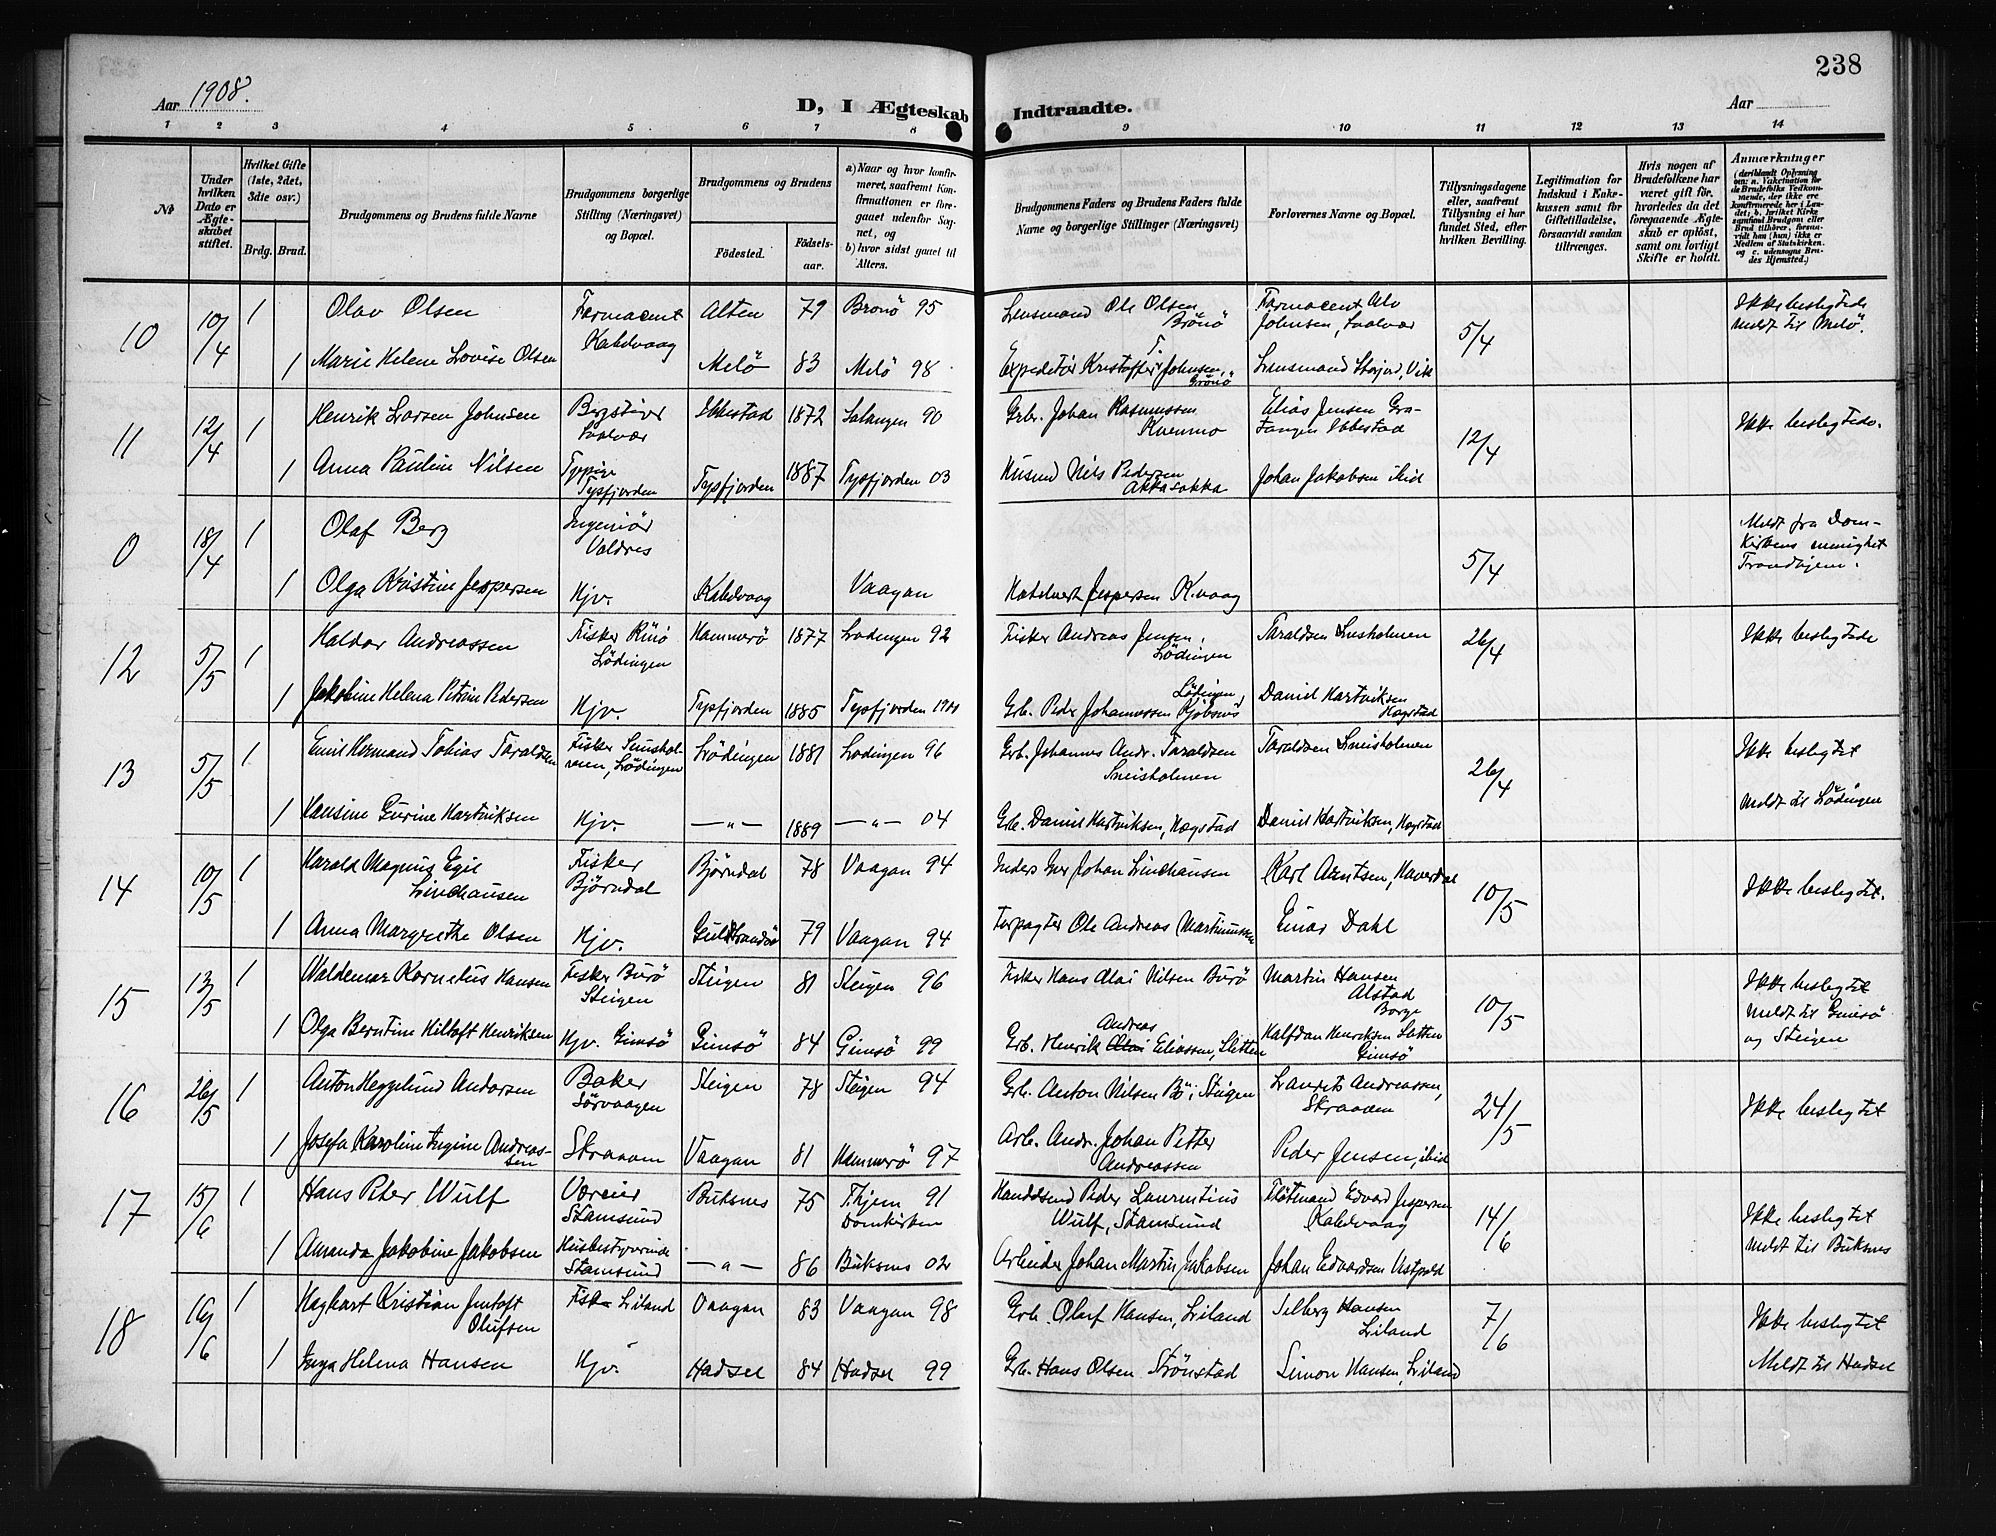 238
Aar 1908.
D, I Ægteskab Indtraadte.
Aar
1 2 3 4 5 6 7 8 9 10 11 12 13 14
Nr
Under hvilken Dato er Ægteskabet stiftet.
Hvilket Gifte (1ste, 2det, 3die osv.)
Brdg. Brud.
Brudgommens og Brudens fulde Navne
Brudgommens borgerlige Stilling (Næringsvei) og Bopæl.
Brudgommens og Brudens
Födested. Födselsaar.
a) Naar og hvor konfirmeret, saafremt Konfirmationen er foregaaet udenfor Sognet, og
b) hvor sidst gaaet til Alters.
Brudgommens Faders og Brudens Faders fulde Navne og borgerlige Stillinger (Næringsvei)
Forlovernes Navne og Bopæl.
Tillysningsdagene eller, saafremt Tillysning ei har fundet Sted, efter hvilken Bevilling.
Legitimation for Indskud i Enkekassen samt for Giftetilladelse, forsaavidt saadan tiltrænges.
Hvis nogen af Brudefolkene har været gift för, hvorledes da det foregaaende Ægteskab er oplöst, samt om lovligt Skifte er holdt.
Anmærkninger (deriblandt Oplysning om: a. Vakcination for de Brudefolks Vedkommende, der ikke ere konfirmerede her i Landet; b. hvilket Kirkesamfund Brudgom eller Brud tilhörer, forsaavidt han (hun) ikke er Medlem af Statskirken, og c. udensogns Brudes Hjemsted.)
10 10/4 1 Olav Olsen Farmacent Kabelvaag Alten 79 Bronö 95 Lensmand Ole Olsen Brönö Farmacent Alv Johnsen, Svolvær 5/4 Ikke beslegtede meldt til Melö.
1 Marie Helene Lovise Olsen Melö 83 Melö 98 Expeditör Kristoffer T. Johnsen, Grönö Lensmand Storjord, Vik
11 12/4 1 Henrik Larsen Johnsen Svolvær Ibbestad 1872 Salangen 90 Grb. Johan Rasmussen Kvenmo Elias Jensen Gratangen Ibbestad 12/4 Ikke beslegtede.
1 Anna Pauline Nilsen Tysfjorden Tysfjorden 1887 Tysfjorden 03 Husmd Nils Pedersen Johan Jakobsen ibid
0 18/4 1 Olaf Berg Ingeniör Valdres 5/4 Meldt fra Domkirkens menighet Trondhjem.
1 Olga Kristine Jespersen Hjv. Kabelvaag Vaagan Jespersen K.vaag
12 5/5 1 Haldor Andreassen Fisker Rinö Lödingen Hammerö 1877 Lödingen 92 Fisker Andreas Jensen, Lödingen Taraldsen 26/4 Ikke beslegtede
1 Jakobine Helena Petrine Pedersen Hjv. Tysfjorden 1885 Tysfjorden 1901 Grb. Peder Johannessen Lödingen Daniel Hartviksen Hogstad
13 5/5 1 Emil Hermand Tobias Taraldsen Fisker Lödingen Lödingen 1881 Lödingen 96 Grb. Johannes Andr. Taraldsen Taraldsen 26/4 Ikke beslegtet
1 Hansine Gurine Hartviksen Hjv. —"— 1889 —"— 04 Grb. Daniel Hartviksen, Hogstad Daniel Hartviksen, Hogstad meldt til Lödingen
14 10/5 1 Harald Magnus Egil Lindhausen Fisker Björndal Björndal 78 Vaagan 94 Johan Lindhausen Karl Arntsen, Haverdal 10/5 Ikke beslegtet.
1 Anna Margrethe Olsen Hjv. 79 Vaagan 94 Ole Andreas Martinussen Einar Dahl
15 13/5 1 Waldemar Kornelius Hansen Fisker Burö Steigen Steigen 81 Steigen 96 Fisker Hans Olai Nilsen Burö Martin Hansen Alstad Borge 10/5 Ikke beslegtet meldt til Gimsö og Steigen
1 Olga Berntine Hiltoft Henriksen Hjv. Gimsö Gimsö 84 Gimsö 99 Grb. Henrik Andreas Olai Eliassen, Sletten Halfdan Henriksen Gimsö
16 26/5 1 Anton Heggelund Andorsen Baker Sörvaagen Steigen 78 Steigen 94 Grb. Anton Nilsen Bö i Steigen Laurits Andreassen, 24/5 Ikke beslegtet
1 Josefa Karoline Ingine Andreassen Vaagan 81 Hammerö 97 Arb. Andr. Johan Petter Andreassen Peder Jensen, ibid
17 15/6 1 Hans Peter Wulf Stamsund Buksnes 75 Thjem Domkirken 91 Peder Laurentius Wulf, Stamsund Edvard Jespersen Kabelvaag 14/6 Ikke beslegtet meldt til Buksnes
1 Amanda Jakobine Jakobsen Husbestyrerinde Stamsund —"— 86 Buksnes 02 Arbeider Johan Martin Jakobsen Johan Edvardsen Vestpold
18 16/6 1 Hagbart Kristian Jentoft Olufsen Fisk Liland Vaagan 83 Vaagan 98 Grb. Oluf Hansen, Liland Selberg Hansen Liland 7/6 Ikke beslegtet
1 Inga Helena Hansen Hjv. Hadsel 84 Hadsel 99 Grb. Hans Olsen Strönstad Simon Hansen, Liland Meldt til Hadsel